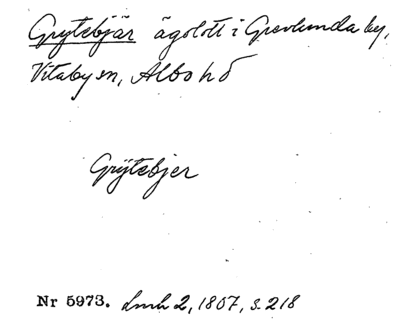 Grytebjär ägolott i Grevlunda by,
Vitaby sn, Albo hd
Grÿtebjer
Nr 5973. Lmh 2, 1807, s. 218